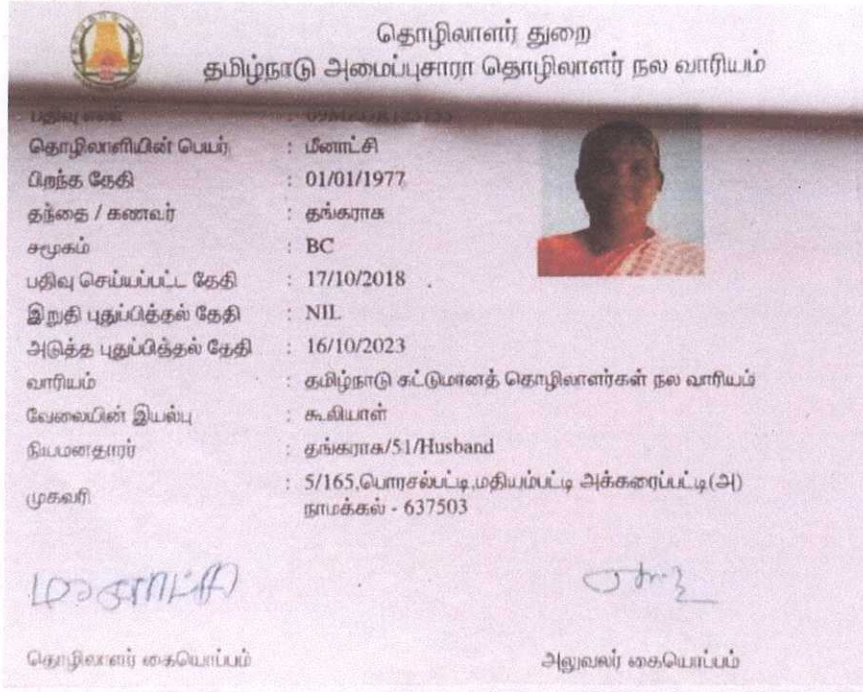 தொழிலாளர் துறை
தமிழ்நாடு அமைப்புசாரா தொழிலாளர் நல வாரியம்
பதிவு எண் :
தொழிலாளியின் பெயர் : மீனாட்சி
பிறந்த தேதி : 01/01/1977
தந்தை / கணவர் : தங்கராசு
சமூகம் : BC
பதிவு செய்யப்பட்ட தேதி : 17/10/2018
இறுதி புதுப்பித்தல் தேதி : NIL
அடுத்த புதுப்பித்தல் தேதி : 16/10/2023
வாரியம் : தமிழ்நாடு கட்டுமானத் தொழிலாளர்கள் நல வாரியம்
வேலையின் இயல்பு : கூலியாள்
நியமனதாரர் : தங்கராசு/51/Husband
முகவரி : 5/165,பொரசல்பட்டி,மதியம்பட்டி அக்கரைப்பட்டி(அ)
நாமக்கல் - 637503
தொழிலாளர் கையொப்பம் அலுவலர் கையொப்பம்